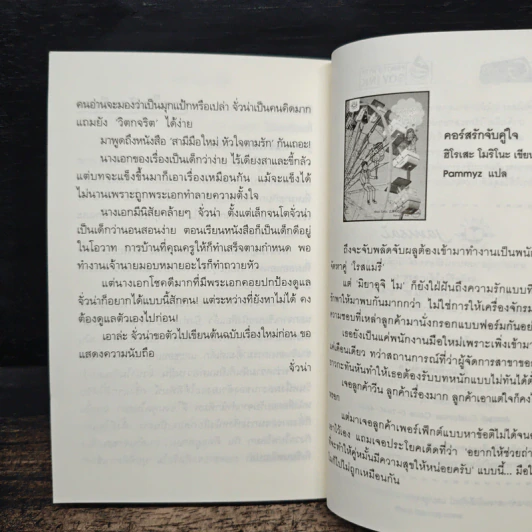 คนอ่านจะมองว่าเป็นมุกแป้กหรือเปล่า จั่วน่าเป็นคนคิดมาก
แถมยัง 'วิตกจริต' ได้ง่าย
มาพูดถึงหนังสือ 'สามีมือใหม่ หัวใจตามรัก' กันเถอะ!
นางเอกของเรื่องเป็นเด็กว่าง่าย ไร้เดียงสาและขี้กลัว
แต่บทจะแข็งขึ้นมาก็เอาเรื่องเหมือนกัน แม้จะแข็งได้
ไม่นานเพราะถูกพระเอกทำลายความตั้งใจ
นางเอกมีนิสัยคล้ายๆ จั่วน่า ตั้งแต่เล็กจนโตจั่วน่า
เป็นเด็กว่านอนสอนง่าย ตอนเรียนหนังสือก็เป็นเด็กดีอยู่
ในโอวาท การบ้านที่คุณครูให้ก็ทำเสร็จตามกำหนด พอ
ทำงานเจ้านายมอบหมายอะไรก็ทำถวายหัว
แต่นางเอกโชคดีมากที่มีพระเอกคอยปกป้องดูแล
จั่วน่าก็อยากได้แบบนี้สักคน! แต่ระหว่างที่ยังหาไม่ได้ คง
ต้องดูแลตัวเองไปก่อน!
เอาล่ะ จั่วน่าขอตัวไปเขียนต้นฉบับเรื่องใหม่ก่อน ขอ
แสดงความนับถือ
จั่วน่า
คอร์สรักจับคู่ใจ
ฮิโรเสะ โมริโนะ เขียน
Pammyz แปล
ถึงจะจับพลัดจับผลูต้องเข้ามาทำงานเป็นพนัก
จัดหาคู่ 'โรสแมรี่'
แต่ 'มิยาอุจิ โม' ก็ยังใฝ่ฝันถึงความรักแบบที่
ให้มาพบกันมากกว่า ไม่ใช่การให้เครื่องจักรม
ความชอบที่เหล่าลูกค้ามานั่งกรอกแบบฟอร์มกันอย่
เธอยังเป็นแค่พนักงานมือใหม่เพราะเพิ่งเข้ามา
เดือนเดียว ทว่าสถานการณ์ที่ว่าผู้จัดการสาขาขอ
กะทันหันทำให้เธอต้องรับบทหนักแบบไม่ทันได้ตั้
เจอลูกค้าวีน ลูกค้าเรื่องมาก ลูกค้าเอาแต่ใจก็คง
แต่มาเจอลูกค้าเพอร์เฟ็กต์แบบหาข้อติไม่ได้จน
แถมเจอประโยคเด็ดที่ว่า 'อยากให้ช่วย
จะทำให้คู่หมั้นมีความสุขให้หน่อยครับ' แบบนี้... มือ
ไปไม่ถูกเหมือนกัน